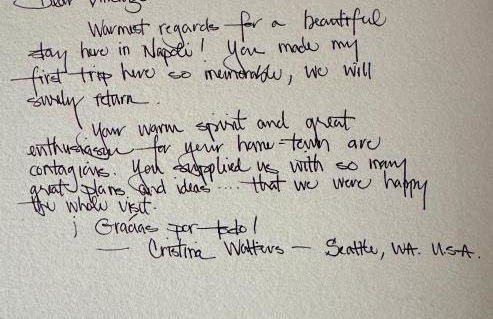 Dear Vincenzo
Warmest regards for a beautiful
stay here in Napoli! You made my
first trip here so memorable, we will
surely return.
Your warm spirit and great
enthusiasm for your home-town are
contagious. You supplied us with so many
great plans and ideas .... that we were happy
the whole visit.
¡ Gracias por todo!
— Cristina Watters — Seattle, WA. U.S.A.